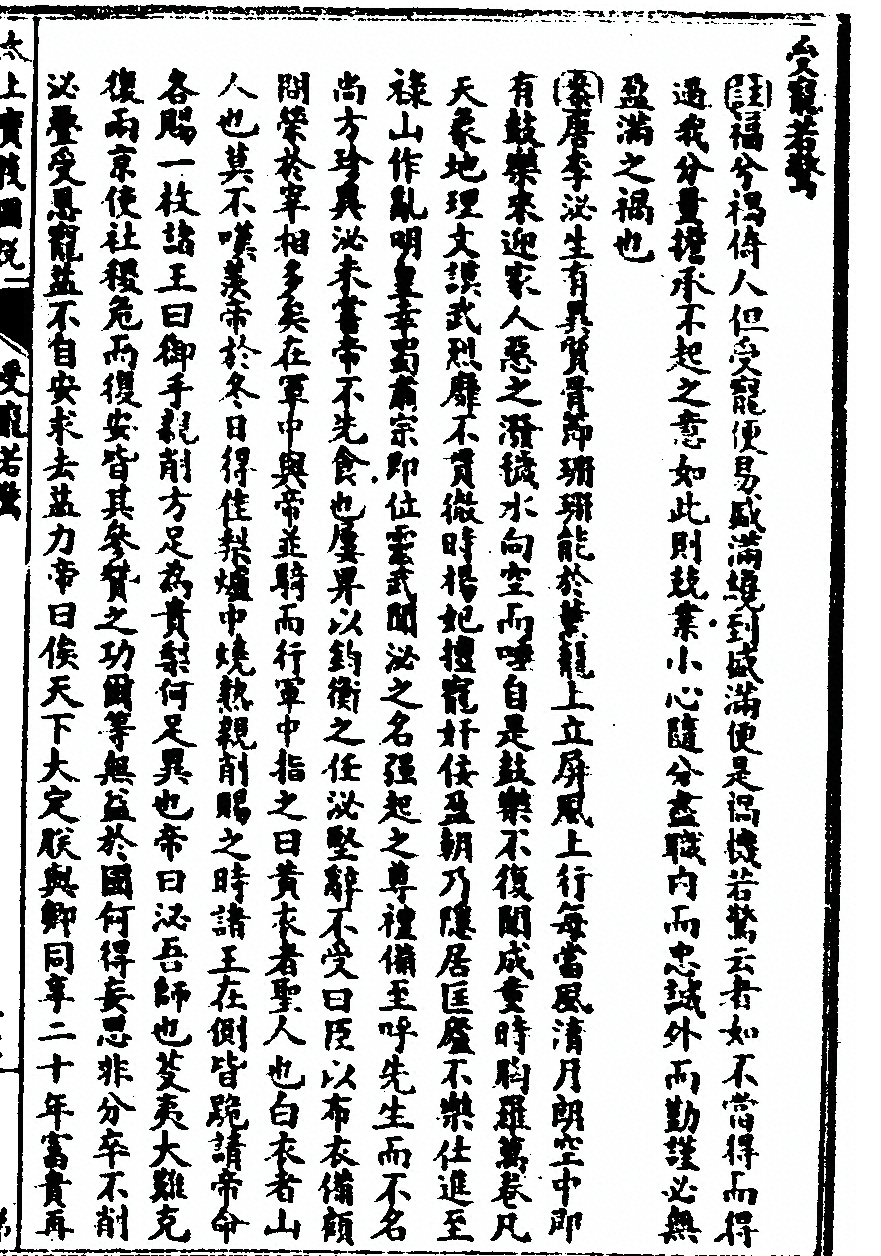 受寵若驚
註福兮禍倚人但受寵便易盛滿纔到盛滿便是禍機若驚云者如不當得而得
過我分量擔承不起之意如此則兢業小心隨分盡職内而忠誠外而勤謹必無
盈滿之禍也
案唐李泌生有異質骨節珊珊能於薰籠上立屏風上行每當風清月朗空中即
有鼓樂來迎家人惡之潑穢水向空而唾自是鼓樂不復聞成童時胸羅萬卷凡
天象地理文謨武烈靡不貫徹時楊妃擅寵奸佞盈朝乃隱居匡廬不樂仕進至
祿山作亂明皇幸蜀肅宗即位靈武聞泌之名强起之尊禮備至呼先生而不名
尚方珍異泌未嘗帝不先食也屢畀以鈞衡之任泌堅辭不受曰臣以布衣備顧
問榮於宰相多矣在軍中與帝並騎而行軍中指之曰黃衣者聖人也白衣者山
人也莫不嘆羨帝於冬日得佳梨爐中燒熟親削賜之時諸王在側皆跪請帝命
各賜一枚諸王曰御手親削方足為貴梨何足異也帝曰泌吾師也芟夷大難克
復兩京使社稷危而復安皆其參贊之功爾等無益於國何得妄思非分卒不削
泌疊受恩寵益不自安求去益力帝曰俟天下大定朕與卿同享二十年富貴再
太上寶筏圖說
受寵若驚